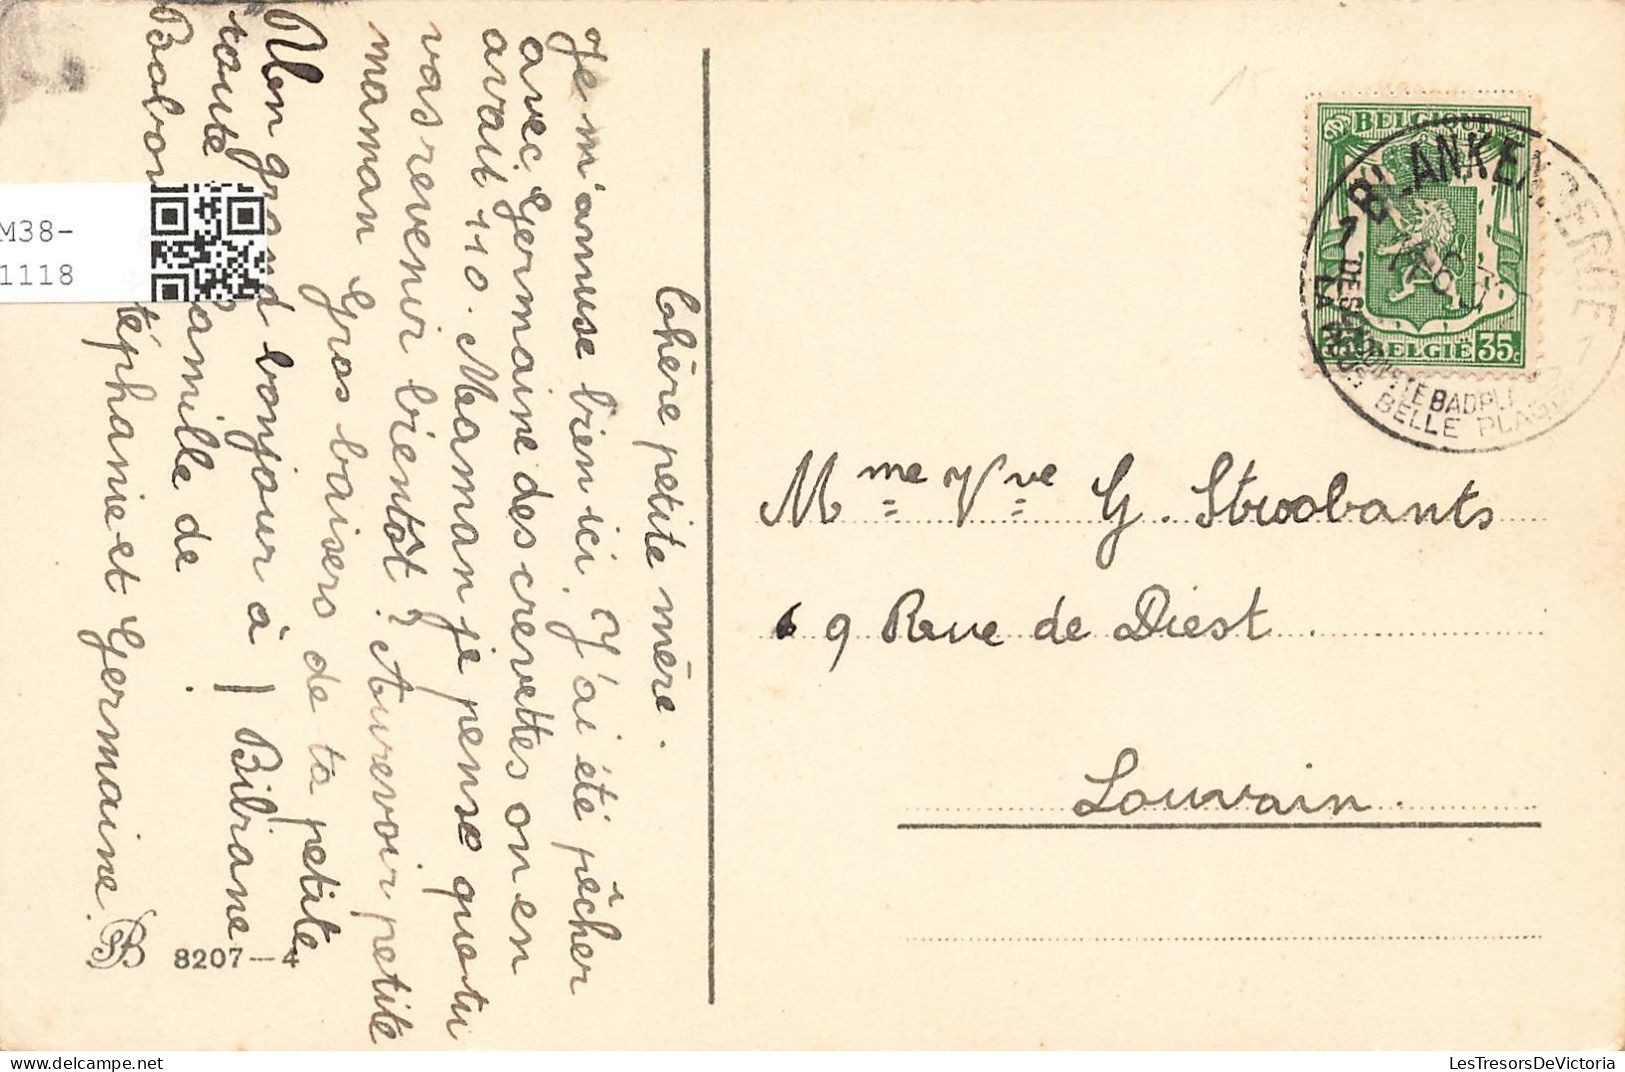 Chère petite mère.
Je m'amuse bien ici. J'ai été pêcher
avec Germaine des crevettes on en
avait 110. Maman je pense que tu
vas revenir bientôt? Aurevoir petite
maman Gros baisers de ta petite
Bibiane
Mon grand bonjour à
toute
famille de
téphanie et Germaine.
8207-4
M38-
1118
BELGIQUE
BELGIË 35c
BLANKENBERGE
LA PLUS BELLE PLAGE
Mme Vve G. Stroobants
69 Rue de Diest
Louvain.
LesTresorsDeVictoria